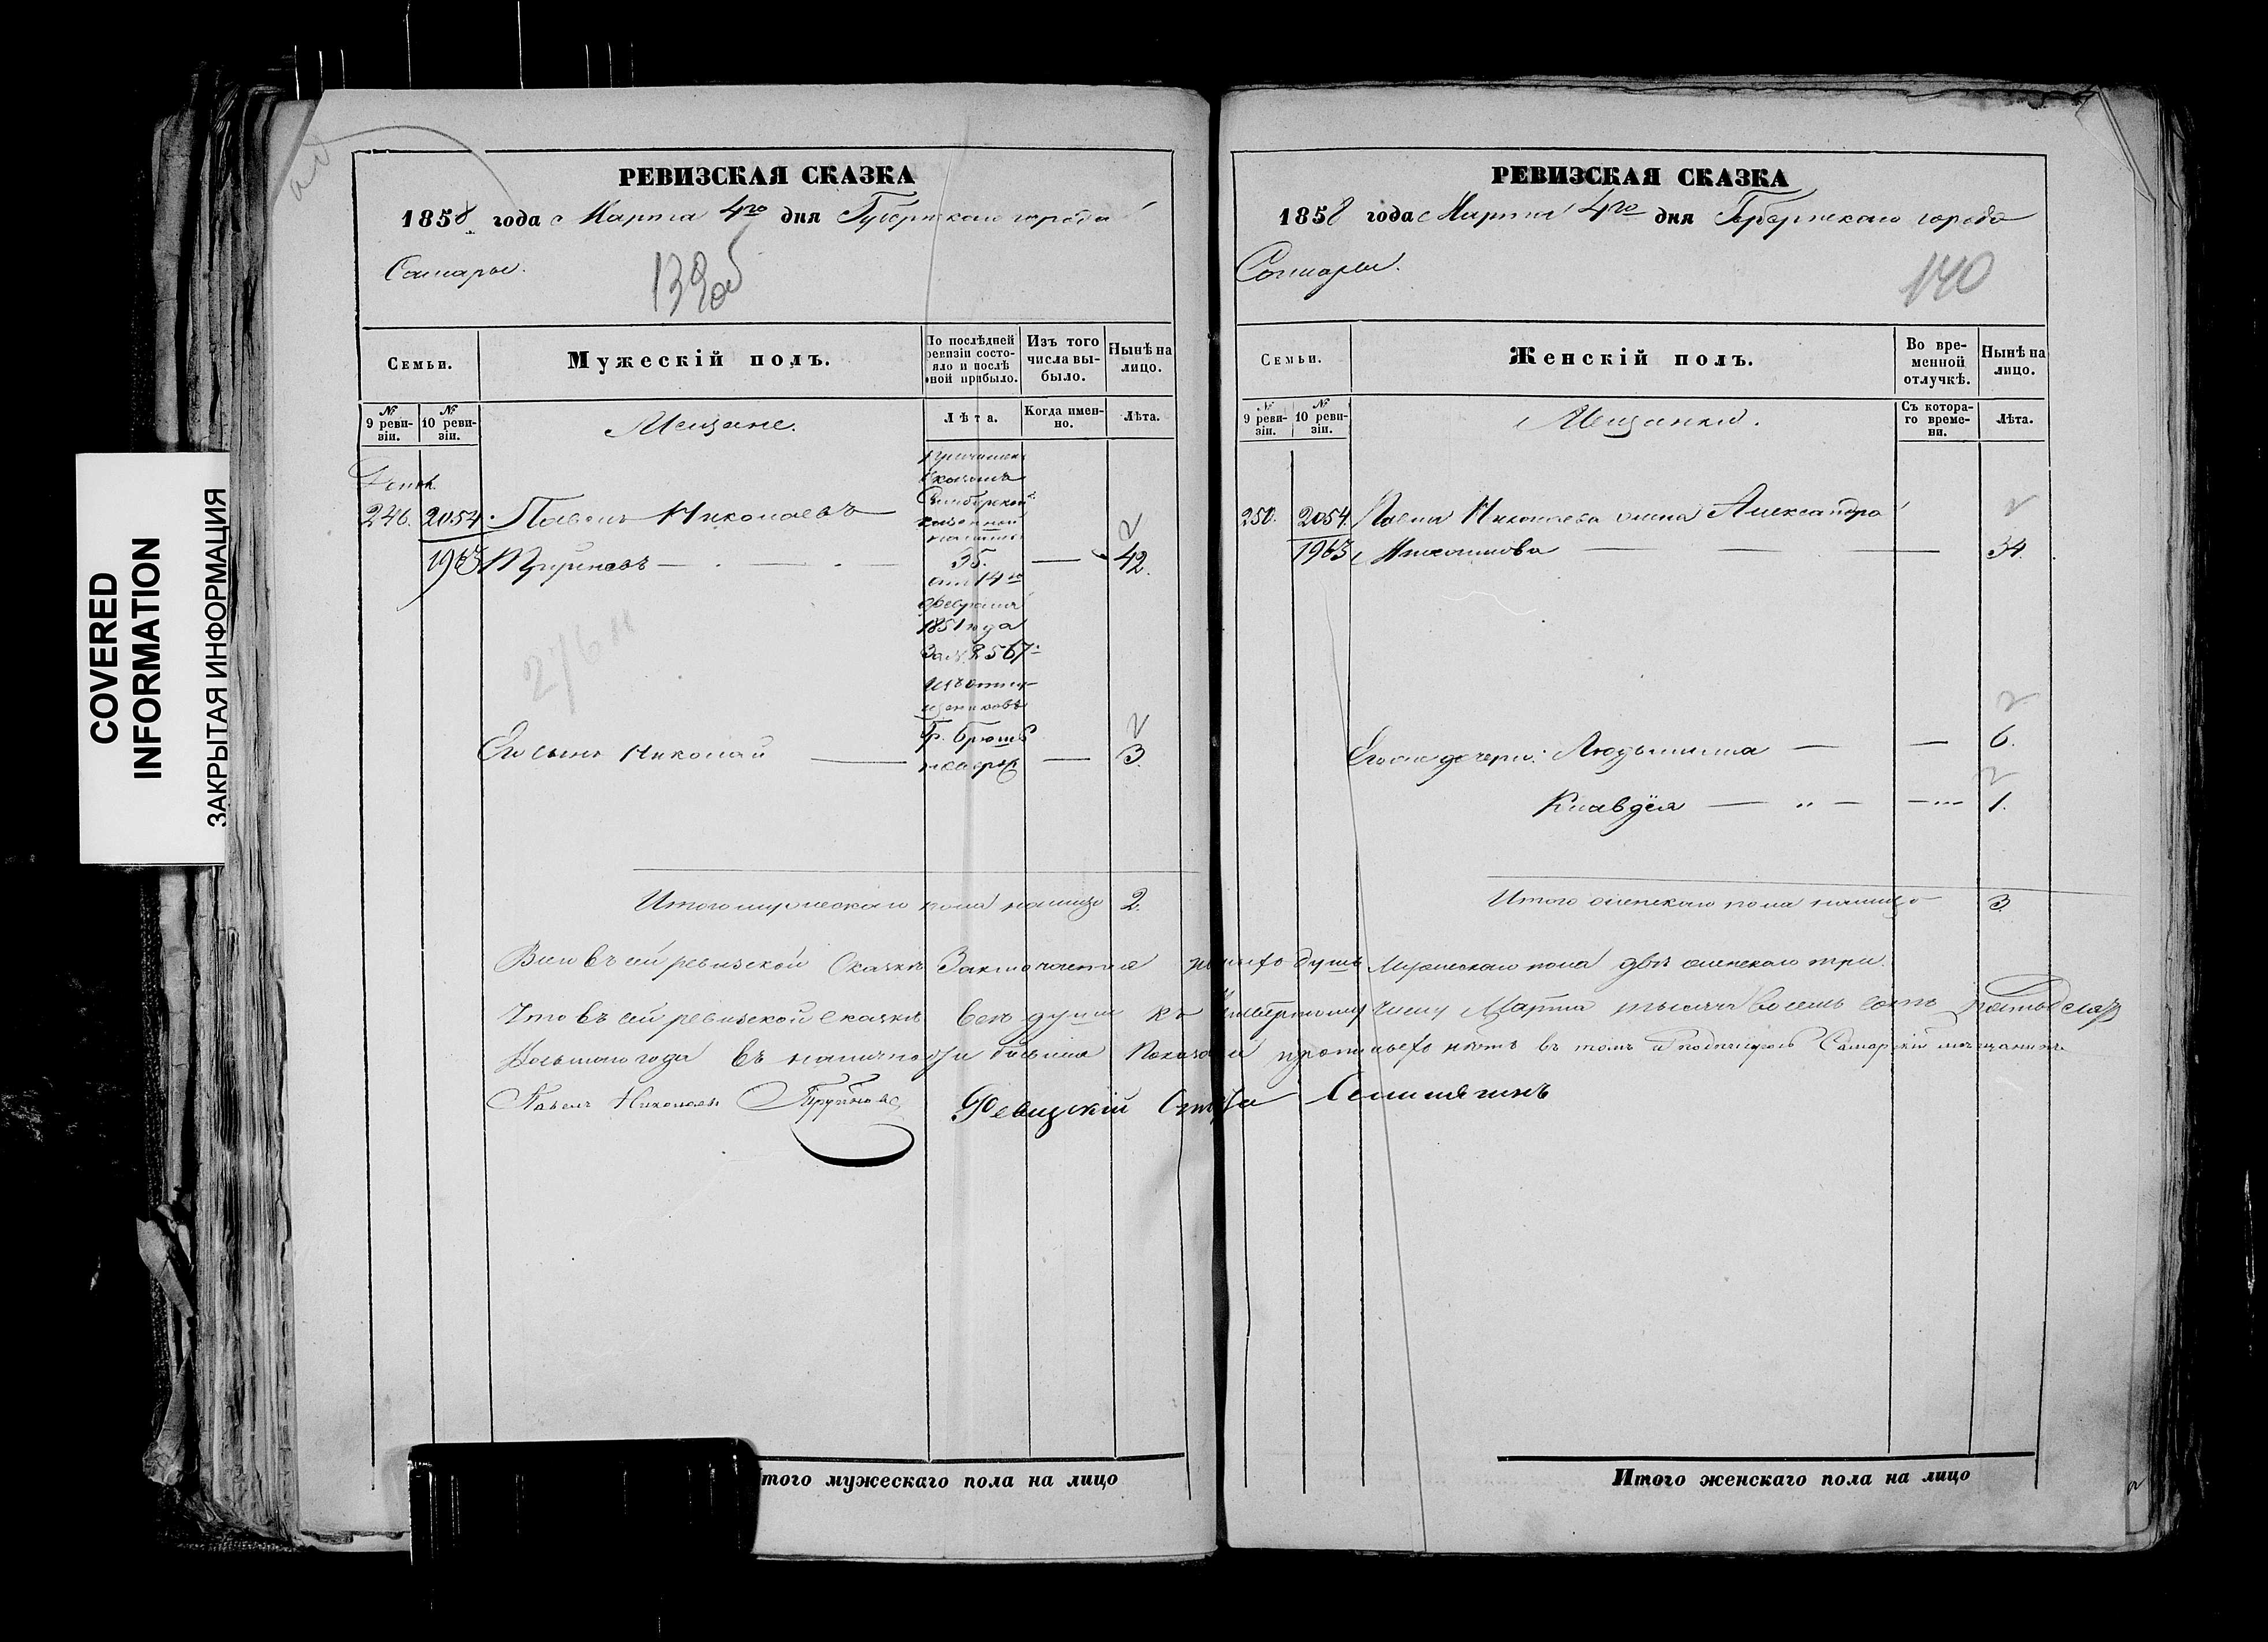 COVERED
INFORMATION
ЗАКРЫТАЯ ИНФОРМАЦИЯ
РЕВИЗСКАЯ СКАЗКА
1858 года Марта 4го дня Губернскаго города
Самары.
139об
Семьи.
Мужескій полъ.
По послѣдней ревизіи состояло и послѣ оной прибыло.
Изъ того числа выбыло.
Нынѣ на лицо.
№ 9 ревизіи.
№ 10 ревизіи.
Мещане.
Лѣта.
Когда именно.
Лѣта.
246. 2054. Павелъ Николаевъ
1963
35. 42.
Симбирской
казенной
палаты
отъ 14го
февраля
1851 года
За № 2567
Его сынъ Николай 3.
Итого мужескаго пола налицо 2.
РЕВИЗСКАЯ СКАЗКА
1858 года Марта 4го дня Губернскаго города
Самары.
140
Семьи.
Женскій полъ.
Во временной отлучкѣ.
Нынѣ на лицо.
№ 9 ревизіи.
№ 10 ревизіи.
Мещанки.
Съ котораго времени.
Лѣта.
250. 2054. Павла Николаева жена Александра
1963 34.
Его же дочери: Людьмила 6.
Клавдія 1.
Итого женскаго пола налицо 3
Всего въ сей ревизской сказкѣ заключается душъ мужескаго пола двѣ женскаго три.
Что въ сей ревизской сказкѣ всѣ души къ четвертому числу Марта тысяча восемь сотъ пятьдесятъ
восьмаго года въ наличности показаны и прописныхъ нѣтъ въ томъ и подписуюсь Самарскій мещанинъ
Павелъ Николаевъ
Итого мужескаго пола на лицо
Итого женскаго пола на лицо